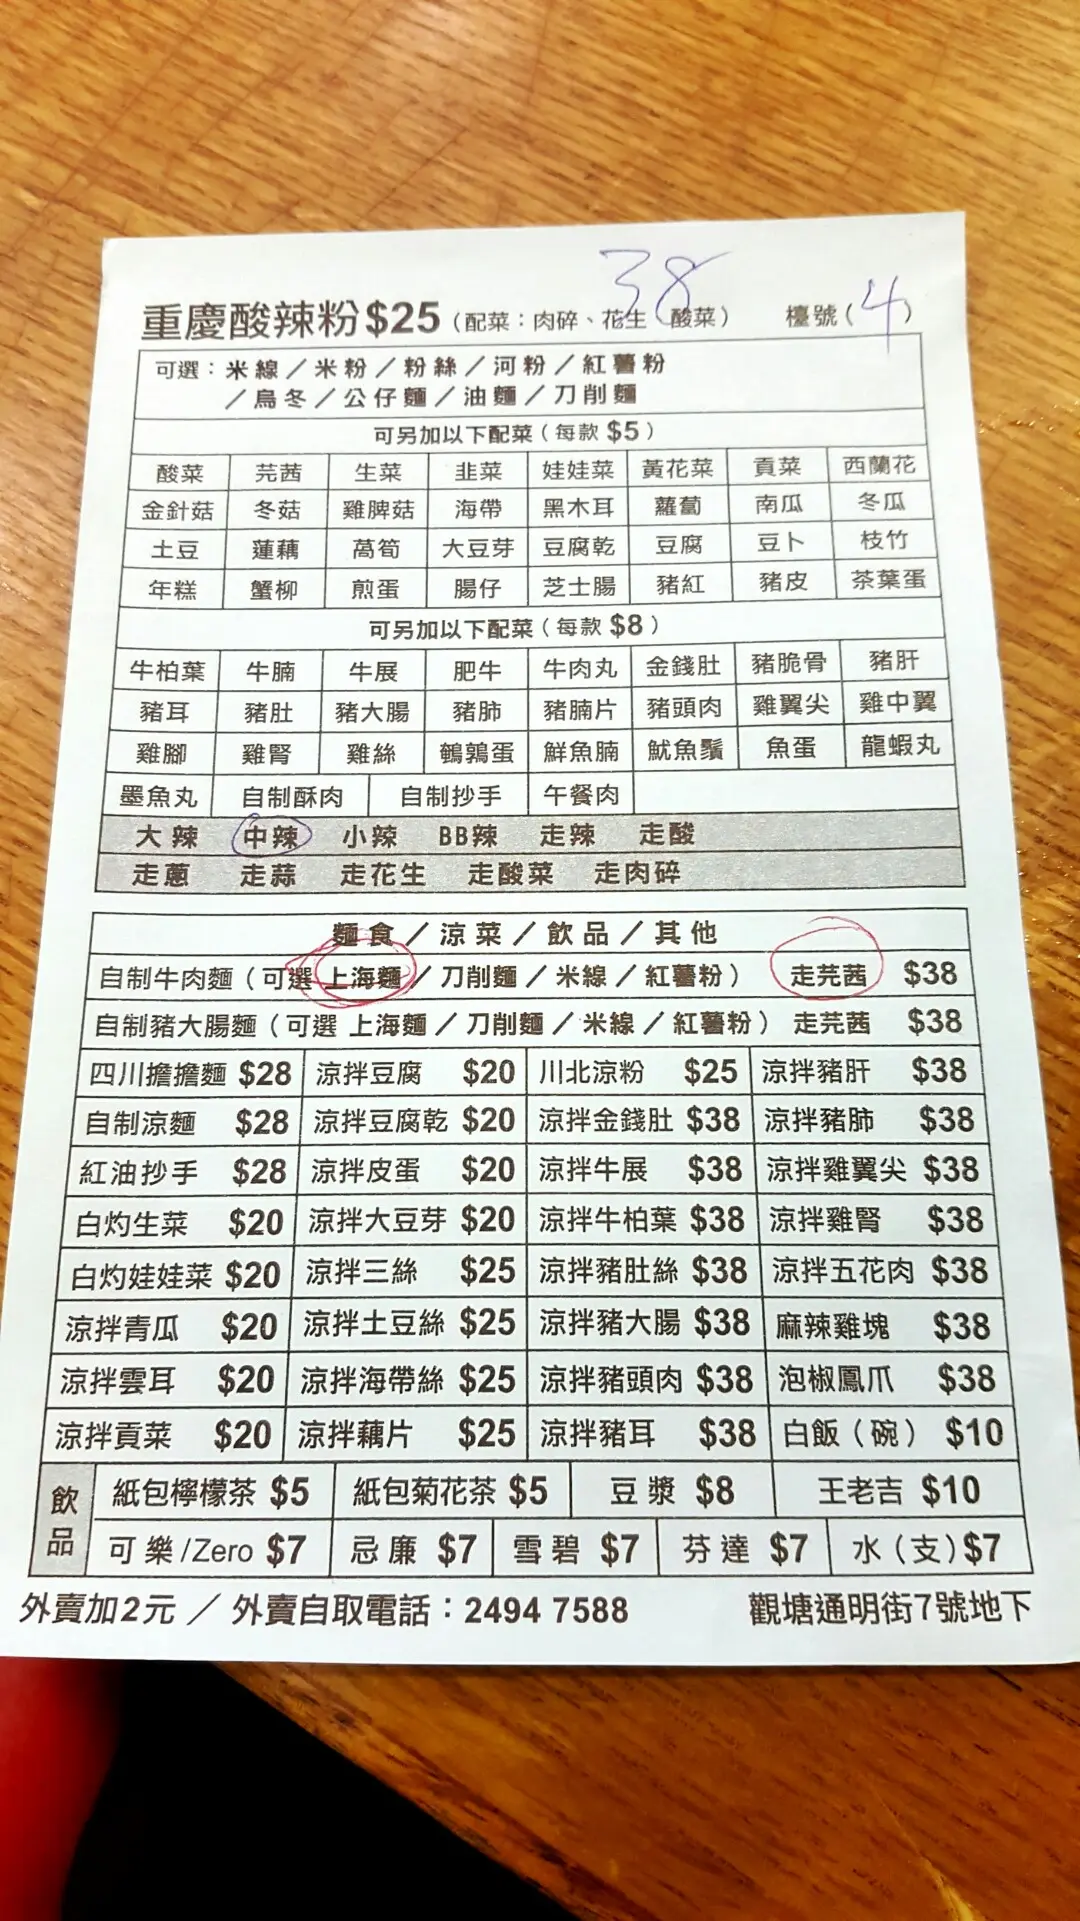 38
重慶酸辣粉$25（配菜：肉碎、花生 酸菜） 檯號(4)
可選：米線／米粉／粉絲／河粉／紅薯粉
／烏冬／公仔麵／油麵／刀削麵
可另加以下配菜（每款 $5）
酸菜 芫茜 生菜 韭菜 娃娃菜 黃花菜 貢菜 西蘭花
金針菇 冬菇 雞脾菇 海帶 黑木耳 蘿蔔 南瓜 冬瓜
土豆 蓮藕 萵筍 大豆芽 豆腐乾 豆腐 豆卜 枝竹
年糕 蟹柳 煎蛋 腸仔 芝士腸 豬紅 豬皮 茶葉蛋
可另加以下配菜（每款 $8）
牛柏葉 牛腩 牛展 肥牛 牛肉丸 金錢肚 豬脆骨 豬肝
豬耳 豬肚 豬大腸 豬肺 豬腩片 豬頭肉 雞翼尖 雞中翼
雞腳 雞腎 雞絲 鵪鶉蛋 鮮魚腩 魷魚鬚 魚蛋 龍蝦丸
墨魚丸 自制酥肉 自制抄手 午餐肉
大辣 中辣 小辣 BB辣 走辣 走酸
走蔥 走蒜 走花生 走酸菜 走肉碎
麵食／涼菜／飲品／其他
自制牛肉麵（可選 上海麵／刀削麵／米線／紅薯粉） 走芫茜 $38
自制豬大腸麵（可選 上海麵／刀削麵／米線／紅薯粉） 走芫茜 $38
四川擔擔麵 $28 涼拌豆腐 $20 川北涼粉 $25 涼拌豬肝 $38
自制涼麵 $28 涼拌豆腐乾 $20 涼拌金錢肚 $38 涼拌豬肺 $38
紅油抄手 $28 涼拌皮蛋 $20 涼拌牛展 $38 涼拌雞翼尖 $38
白灼生菜 $20 涼拌大豆芽 $20 涼拌牛柏葉 $38 涼拌雞腎 $38
白灼娃娃菜 $20 涼拌三絲 $25 涼拌豬肚絲 $38 涼拌五花肉 $38
涼拌青瓜 $20 涼拌土豆絲 $25 涼拌豬大腸 $38 麻辣雞塊 $38
涼拌雲耳 $20 涼拌海帶絲 $25 涼拌豬頭肉 $38 泡椒鳳爪 $38
涼拌貢菜 $20 涼拌藕片 $25 涼拌豬耳 $38 白飯（碗） $10
飲品 紙包檸檬茶 $5 紙包菊花茶 $5 豆漿 $8 王老吉 $10
可樂/Zero $7 忌廉 $7 雪碧 $7 芬達 $7 水（支）$7
外賣加2元 ／ 外賣自取電話：2494 7588 觀塘通明街7號地下